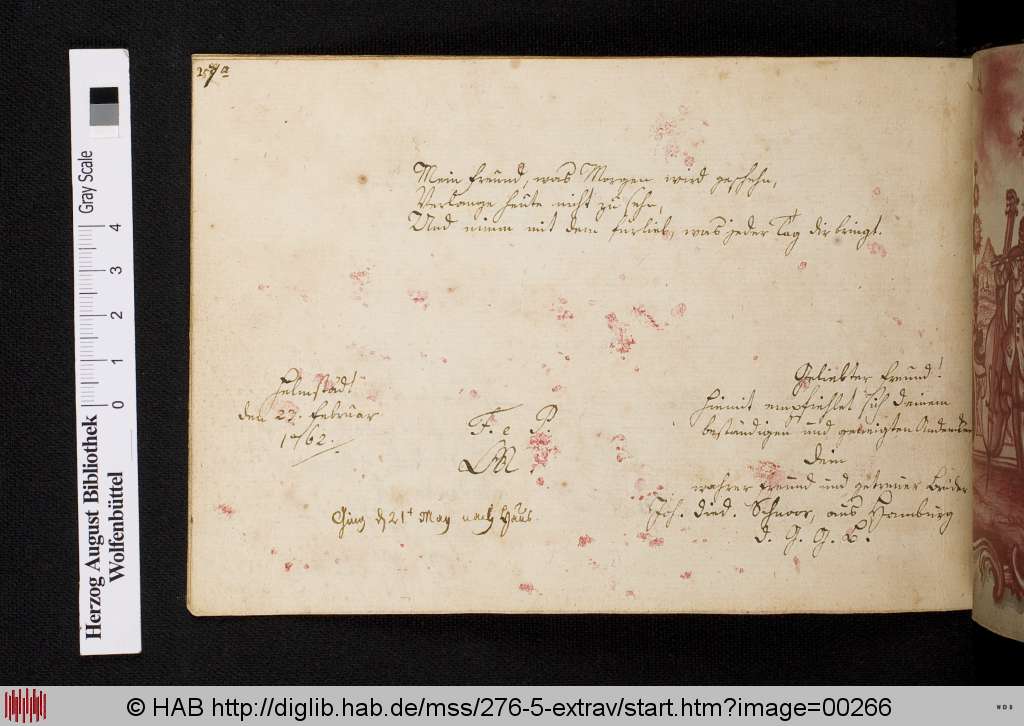 257a
Mein Freund, was Morgen wird geschehn,
Verlange heute nicht zu sehn,
Und nimm mit dem fürlieb, was jeder Tag dir bringt.
Helmstädt
den 23. Februar
1762.
F. e P.
Geliebter Freund!
Hiemit empfiehlet sich deinem
beständigen und geneigten Andencken
Dein
wahrer Freund und getreuer Bruder
Joh. Died. Schnorr, aus Hamburg
d. G. G. B.
Ging d 21t May nach Haus.
Gray Scale
4
3
2
1
0
Herzog August Bibliothek
Wolfenbüttel
© HAB http://diglib.hab.de/mss/276-5-extrav/start.htm?image=00266
WDB